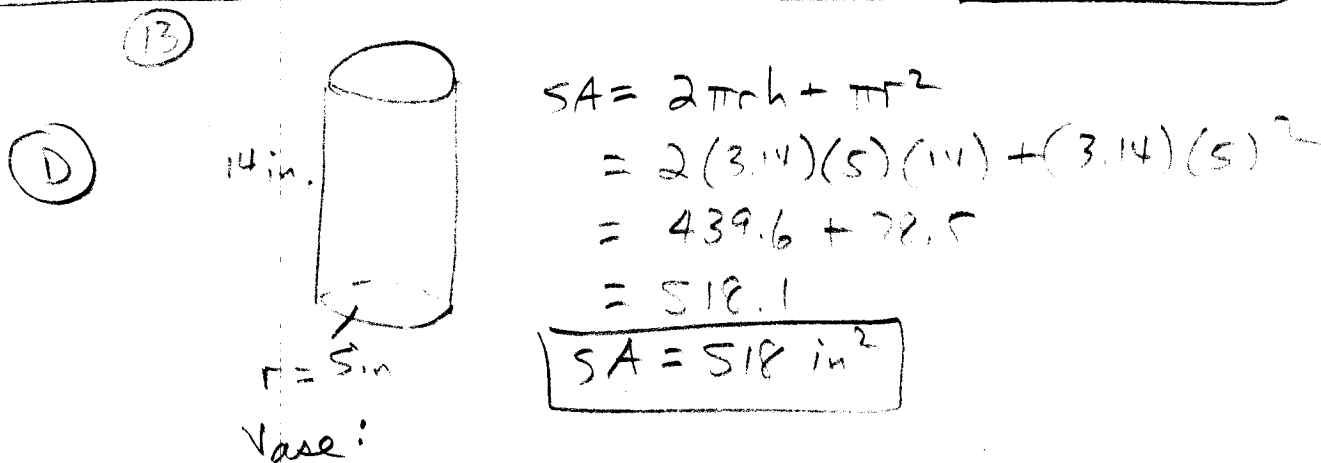 13
D
14 in.
r = 5in
Vase:
SA = 2πrh + πr²
= 2(3.14)(5)(14) + (3.14)(5)²
= 439.6 + 78.5
= 518.1
SA = 518 in²